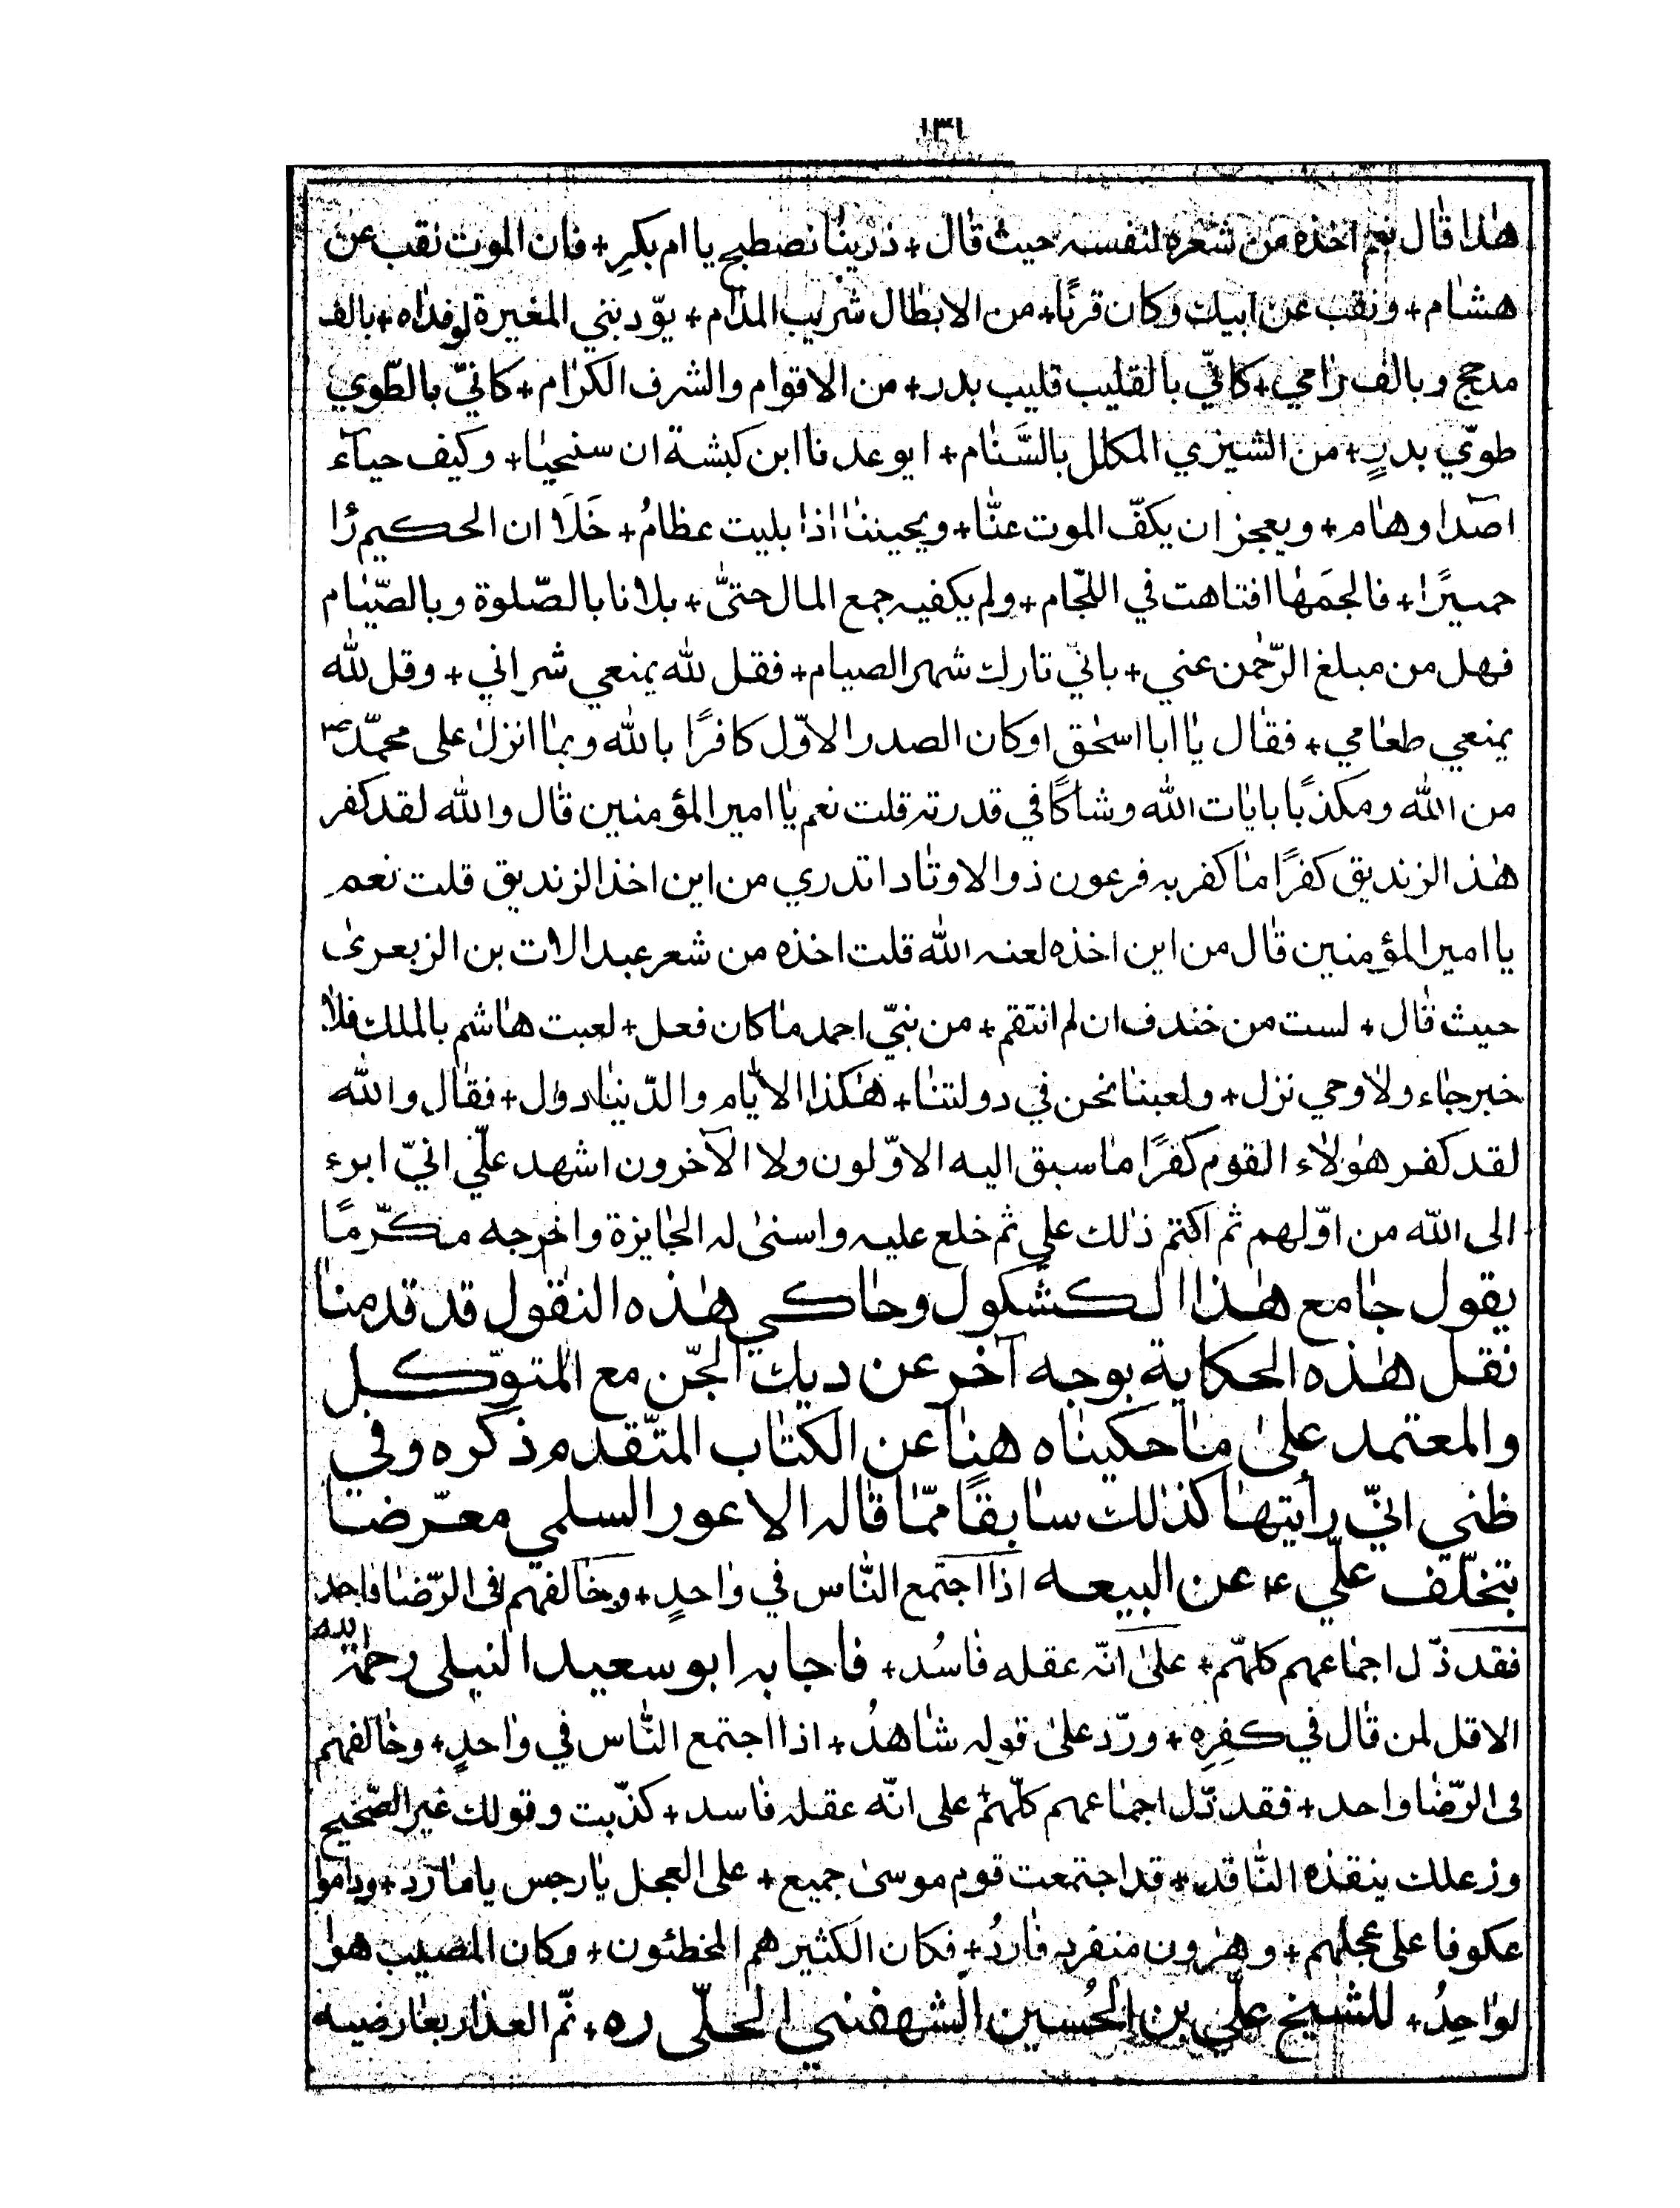 ١٣١
هٰذا قال نعم اخذه من شعره لنفسه حيث قال + ذرينا نصطبح يا ام بكرِ + فان الموت نقب عن
هشام + ونقب عن ابيك وكان قرنًا + من الابطال شريب المدام + يودّ بني المغيرة لو فداه + بالف
مدحج وبالف رامي + كانّي بالقليب قليب بدر + من الاقوام والشرف الكرام + كانيّ بالطّوي
طويّ بدرٍ + من الشيزي المكلل بالسَّنام + ايوعدنا ابن كبشة ان سنحيا + وكيف حيآء
اصدآ وهام + ويعجز ان يكفّ الموت عنّا + ويحييننا اذا بليت عظامُ + خَلَا ان الحكيم رًا
حميرًا + فالجمَها افتاهت في اللجّام + ولم يكفيه جمع المال حتىّ + بلانا بالصّلوة وبالصّيام
فهل من مبلغ الرّحمن عني + بانيّ تارك شهر الصيام + فقل لله يمنعي شرابي + وقل لله
يمنعي طعامي + فقال يا ابا اسحٰق اوكان الصدر الاوّل كافرًا بالله وبما انزل على محمّد ص
من الله ومكذبًا باياتِ الله وشاكًا في قدرته قلت نعم يا امير المؤمنين قال والله لقد كفر
هٰذ الزنديق كفرًا ما كفر به فرعون ذو الاوتاد اتدري من اين اخذ الزنديق قلت نعم
يا امير المؤمنين قال من اين اخذه لعنه الله قلت اخذه من شعر عبد الات بن الزبعرىٰ
حيث قال + لست من خندف ان لم انتقم + من نبيّ احمد ما كان فعل + لعبت هاشم بالملك فلا
خبر جاء ولا وحي نزل + ولعبنا نحن في دولتنا + هٰكذا الايّام والدّنيا دول + فقال والله
لقد كفر هؤلاء القوم كفرًا ما سبق اليه الاوّلون ولا الآخرون اشهد عليّ انيّ ابرء
الى الله من اوّلهم ثم اكتم ذٰلك علي ثم خلع عليه واسنىٰ له الجايزة واخرجه مكرّمًا
يقول جامع هٰذا الكشكول وحاكي هٰذه النقول قد قدمنا
نقل هٰذه الحكاية بوجه آخر عن ديك الجّن مع المتوّكل
والمعتمد علىٰ ما حكيناه هنا عن الكتاب المتّقدم ذكره وفي
ظني انيّ رأيتها كذلك سابقًا ممّا قاله الاعور السلمي معرّضا
بتخلّف عليّ ع عن البيعه اذا اجتمع النّاس في واحدٍ + وخالفهم فى الرّضا واحد
فقد دّل اجماعهم كلهّم + علىٰ انّه عقله فاسُد + فاجابه ابو سعيد النيلى رحمة الله
الاقل لمن قال في كفرِهِ + وردّ علىٰ قوله شاهدُ + اذا اجتمع النّاس في واحدٍ + وخالفهم
فى الرّضا واحد + فقد دّل اجماعهم كلّهم على انّه عقله فاسد + كذّبت وقولك غير الصّحيح
وزعلك ينقده النّاقد + قد اجتمعت قوم موسىٰ جميع + على العجل يا رجس يا مارد + وداموا
عكوفا على عجلهم + وهٰرون منفرد فاردُ + فكان الكثير هم المخطئون + وكان المصيب هوا
لواحِدُ + للشيخ عليّ بن الحُسين الشهفني الحلّى ره + نمّ العذار بعارضيه